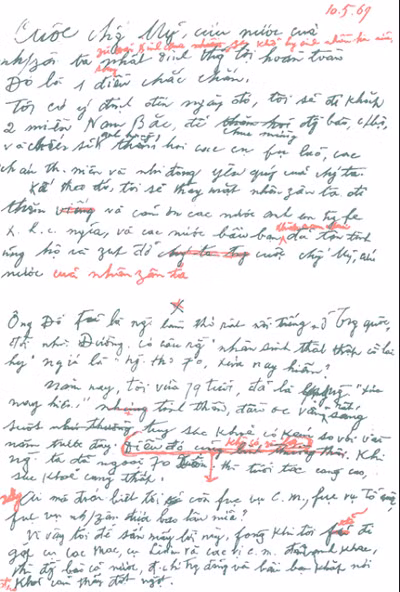 10.5.69
Cuộc chống Mỹ, cứu nước của
nhân zân ta
nhất định thắng lợi hoàn toàn
Đó là 1 điều chắc chắn.
Tôi có ý định đến ngày đó, tôi sẽ đi khắp
2 miền Nam Bắc, để chúc mừng đồng bào,
và thăm hỏi các cụ fụ lão, các
th. niên và nhi đồng yêu quý của chúng ta.
Kế theo đó, tôi sẽ thay mặt nhân zân ta đi
thăm và cảm ơn các nước anh em
x. h. c. nghĩa, và các nước bầu bạn đã tận tình
ủng hộ và giúp đỡ cuộc chống Mỹ, cứu
nước của nhân zân ta
x
Ông Đỗ Fủ là người làm thơ rất nổi tiếng ở Trung quốc,
đời nhà Đường, có câu rằng "nhân sinh thất thập cổ lai
hy" nghĩa là "người thọ 70, xưa nay hiếm".
Năm nay, tôi vừa 79 tuổi, đã là "xưa
nay hiếm" nhưng tinh thần, đầu óc vẫn rất sáng
suốt, tuy sức khoẻ có kém so với vài
năm trước đây. Điều đó cũng Khi
người ta đã ngoài 70 xuân, thì tuổi tác càng cao,
sức khoẻ càng thấp.
Ai mà đoán biết tôi còn fục vụ C.M., fục vụ Tổ quốc,
fục vụ nhân zân được bao lâu nữa?
Vì vậy tôi để sẵn mấy lời này, fòng khi tôi sẽ đi
gặp cụ Các Mác, cụ Lênin và các vị C.M. đàn anh khác,
thì đồng bào cả nước, đồng chí trong đảng và bầu bạn khắp nơi
khỏi cảm thấy đột ngột.